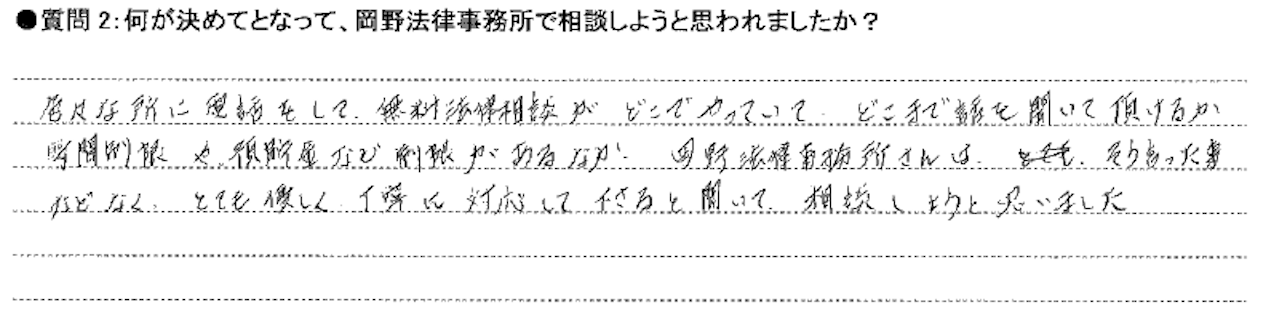 ●質問2:何が決めてとなって、岡野法律事務所で相談しようと思われましたか？
色々な所に電話をして、無料法律相談が どこでやっていて、どこまで話を聞いて頂けるか
時間制限 や、預貯金など 制限がある なか 岡野法律事務所さんは、そういった事
などなく、とても優しく 丁寧に 対応して 下さると聞いて、相談しようと思いました